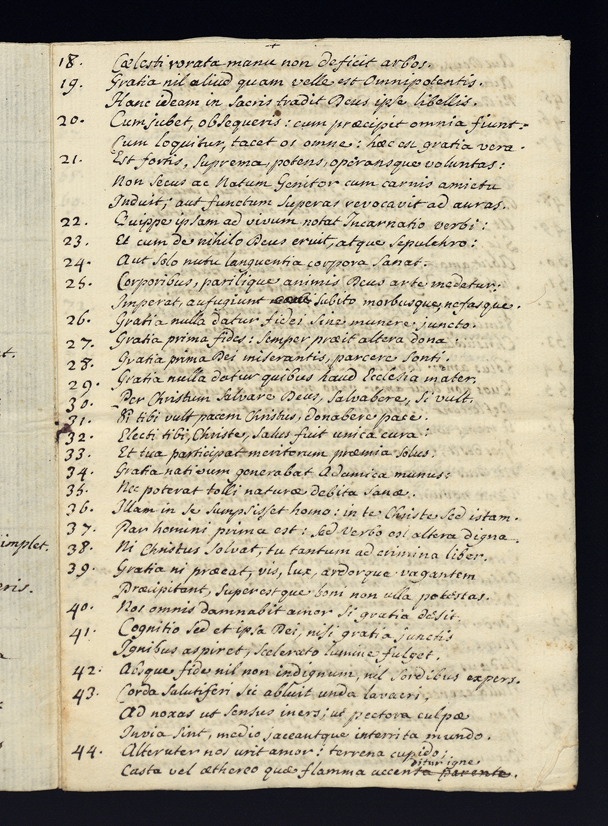 t.
implet.
eris.
18. Cælesti rorata manu non deficit arbos.
19. Gratia nil aliud quam velle est Omnipotentis.
Hanc ideam in Sacris tradit Deus ipse libellis.
20. Cum jubet, obsequeris: cum præcipit omnia fiunt.
Cum loquitur, tacet os omne: hæc est gratia vera.
21. Est fortis, Suprema, potens, operansque voluntas:
Non Secus ac Natum Genitor cum carnis amictu
Induit; aut functum Superas revocavit ad auras.
22. Quippe ipsam ad vivum notat Incarnatio verbi:
23. Et cum de nihilo Deus eruit, atque Sepulchro:
24. Aut Solo nutu languentia corpora Sanat.
25. Corporibus, parilique animis Deus arte medetur:
Imperat, aufugiunt subito morbusque, nefasque.
26. Gratia nulla datur fidei Sine munere juncto.
27. Gratia prima fides: Semper præit altera dona.
28. Gratia prima Dei miserantis, parcere Sonti.
29. Gratia nulla datur quibus haud Ecclesia mater.
30. Per Christum Salvare Deus, Salvabere, Si vult.
31. Si tibi vult pacem Christus, donabere pace.
32. Electi tibi, Christe, Salus fuit unica cura:
33. Et tua participat meritorum præmia Solus.
34. Gratia nativum generabat Adamica munus:
35. Nec poterat tolli naturæ debita Sanæ.
36. Illam in Se Sumpsisset homo: in te Christe Sed istam.
37. Par homini prima est: Sed Verbo est altera digna.
38. Ni Christus Solvat, tu tantum ad crimina liber.
39. Gratia ni præeat, vis, lux, ardorque vagantem
Præcipitant, Superestque boni non ulla potestas.
40. Nos omnis damnabit amor Si gratia desit.
41. Cognitio Sed et ipsa Dei, nisi gratia junctis
Ignibus aspiret, Scelerato lumine fulget.
42. Absque fide nil non indignum, nil Sordibus expers.
43. Corda Salutiferi Sic abluit unda lavacri,
Ad noxas ut Sensus iners; ut pectora culpæ
Invia Sint, medio jaceantque interrita mundo.
44. Alteruter nos urit amor: terrena cupido;
ditur igne
Casta vel æthereo quæ flamma accenta parente.